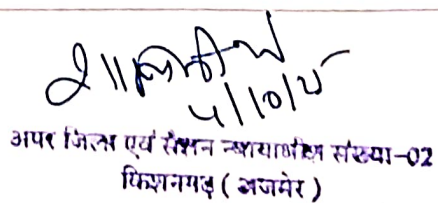 4/10/
अपर जिला एवं सैशन न्यायाधीश संख्या-02
किशनगढ़ ( अजमेर )